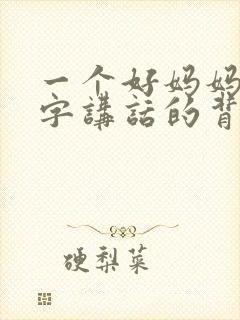 一个好妈妈
字講話的背
硬梨菜